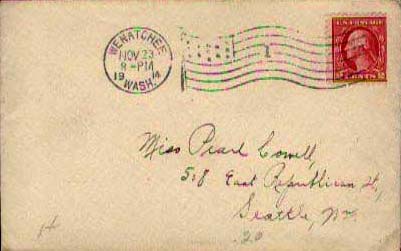 WENATCHEE
NOV 23
8-PM
1914
WASH.
1
U.S. POSTAGE
2 CENTS 2
Miss Pearl Cowell,
518 East Republican St,
Seattle, Wn.
.20